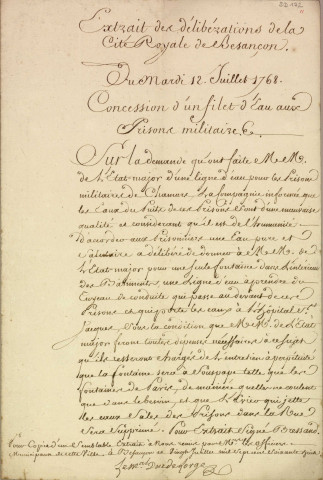 Extrait des délibérations de la
Cité Royale de Besançon.
Du Mardi 12 Juillet 1768.
Concession d'un filet d'Eau aux
Prisons militaires.
Sur la demande qu'ont faite M.M. de
l'Etat-major d'une ligne d'eau pour les Prisons
militaires de Chamars, la Compagnie informée que
les Eaux du Puits de ces Prisons sont d'une mauvaise
qualité et considerant qu'il est de l'humanité
d'accorder aux Prisonniers une Eau pure et
salutaire a délibéré de donner à M.M. de
l'Etat major pour une seule fontaine dans l'intérieur
des Batimens, une Ligne d'eau a prendre du
Tuyeau de conduite qui passe au devant de ces
Prisons et qui porte les eaux à l'hopital St.
Jacques, sous la condition que M.M. de l'Etat
major feront toutes depenses necessaires à ce sujet
qu'ils resteront chargés de l'entretien à perpétuité
que la fontaine sera a Soupape telle que les
fontaines de Paris, de maniere quelle ne coulent
que dans le besoin, et que qui jette
les eaux Sales des Prisons dans la Rue
Sera Supprimé. Pour Extrait Signé Bressand.
Pour Copie d'un Semblable Extrait à Nous remis par Mrs. les officiers
Municipaux de cette Ville, à Besançon ce Vingt Juillet mil Sept cent Soixante